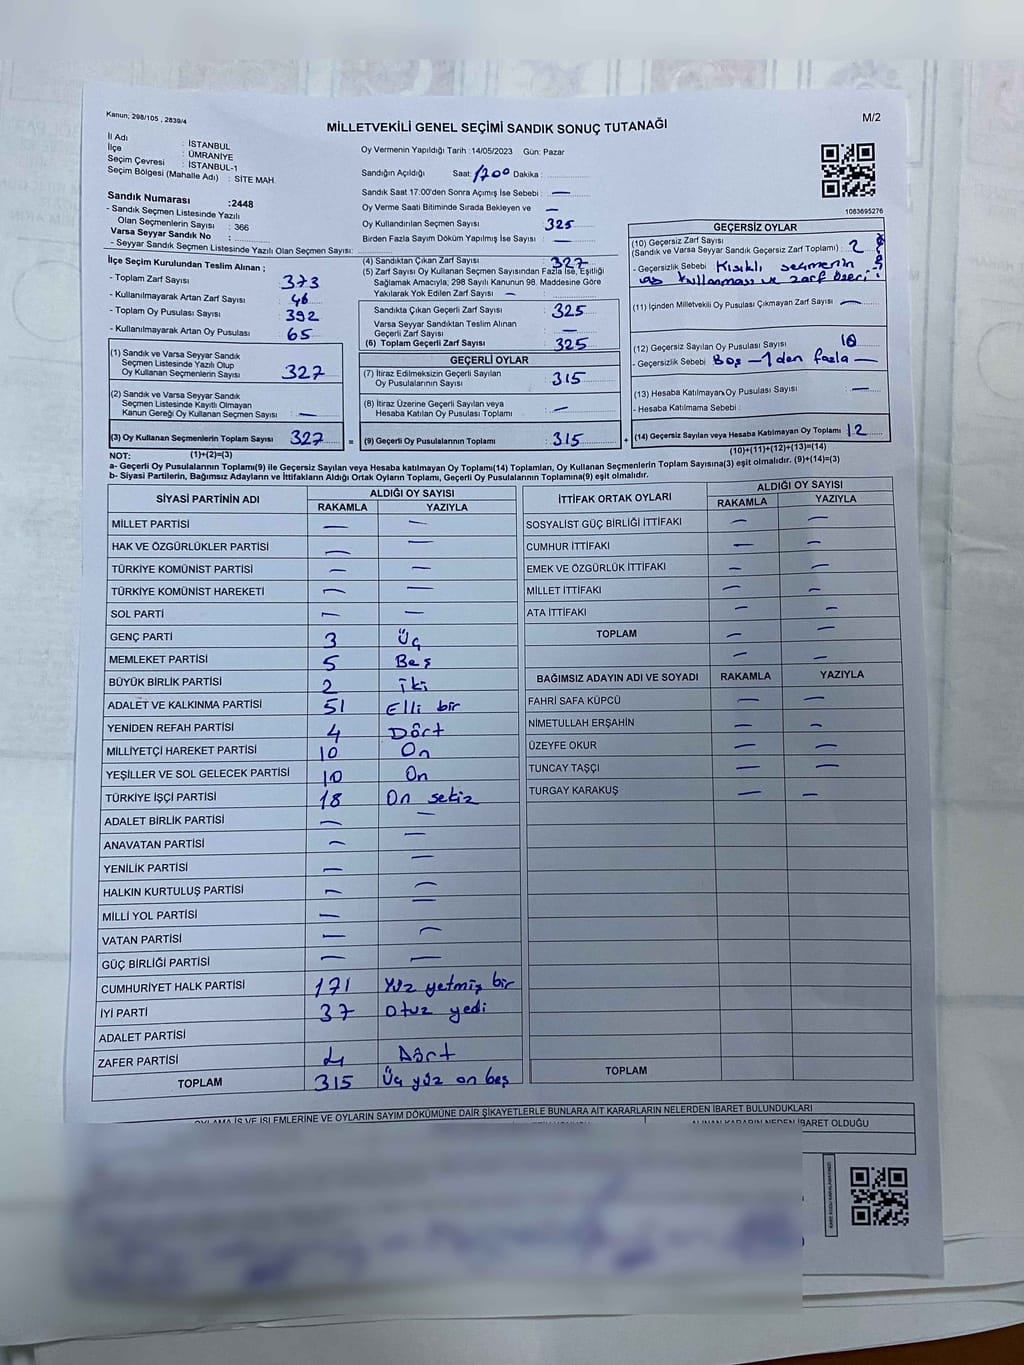 Kanun; 298/105 , 2839/4
MİLLETVEKİLİ GENEL SEÇİMİ SANDIK SONUÇ TUTANAĞI
M/2
İl Adı : İSTANBUL
İlçe : ÜMRANİYE
Seçim Çevresi : İSTANBUL-1
Seçim Bölgesi (Mahalle Adı) : SİTE MAH.
Sandık Numarası :2448
- Sandık Seçmen Listesinde Yazılı
Olan Seçmenlerin Sayısı : 366
Varsa Seyyar Sandık No :
- Seyyar Sandık Seçmen Listesinde Yazılı Olan Seçmen Sayısı:
Oy Vermenin Yapıldığı Tarih :14/05/2023 Gün: Pazar
Sandığın Açıldığı Saat: 1700 Dakika :
Sandık Saat 17:00'den Sonra Açımış İse Sebebi : —
Oy Verme Saati Bitiminde Sırada Bekleyen ve —
Oy Kullandırılan Seçmen Sayısı 325
Birden Fazla Sayım Döküm Yapılmış İse Sayısı —
1083695276
İlçe Seçim Kurulundan Teslim Alınan ;
- Toplam Zarf Sayısı : 373
- Kullanılmayarak Artan Zarf Sayısı : 46
- Toplam Oy Pusulası Sayısı : 392
- Kullanılmayarak Artan Oy Pusulası : 65
(1) Sandık ve Varsa Seyyar Sandık
Seçmen Listesinde Yazılı Olup
Oy Kullanan Seçmenlerin Sayısı : 327
(2) Sandık ve Varsa Seyyar Sandık
Seçmen Listesinde Kayıtlı Olmayan
Kanun Gereği Oy Kullanan Seçmen Sayısı : —
(3) Oy Kullanan Seçmenlerin Toplam Sayısı 327 =
(4) Sandıktan Çıkan Zarf Sayısı : 327
(5) Zarf Sayısı Oy Kullanan Seçmen Sayısından Fazla İse, Eşitliği
Sağlamak Amacıyla; 298 Sayılı Kanunun 98. Maddesine Göre
Yakılarak Yok Edilen Zarf Sayısı —
Sandıkta Çıkan Geçerli Zarf Sayısı : 325
Varsa Seyyar Sandıktan Teslim Alınan
Geçerli Zarf Sayısı : —
(6) Toplam Geçerli Zarf Sayısı : 325
GEÇERLİ OYLAR
(7) İtiraz Edilmeksizin Geçerli Sayılan
Oy Pusulalarının Sayısı : 315
(8) İtiraz Üzerine Geçerli Sayılan veya
Hesaba Katılan Oy Pusulası Toplamı : —
(9) Geçerli Oy Pusulalarının Toplamı : 315 +
GEÇERSİZ OYLAR
(10) Geçersiz Zarf Sayısı
(Sandık ve Varsa Seyyar Sandık Geçersiz Zarf Toplamı) : 2
- Geçersizlik Sebebi Kısıklı seçmenin
oy kullanması ve zarf
(11) İçinden Milletvekili Oy Pusulası Çıkmayan Zarf Sayısı —
(12) Geçersiz Sayılan Oy Pusulası Sayısı 10
- Geçersizlik Sebebi : Boş — 1 den fazla —
(13) Hesaba Katılmayan Oy Pusulası Sayısı : —
- Hesaba Katılmama Sebebi :
(14) Geçersiz Sayılan veya Hesaba Katılmayan Oy Toplamı 12
NOT: (1)+(2)=(3)
(10)+(11)+(12)+(13)=(14)
a- Geçerli Oy Pusulalarının Toplamı(9) ile Geçersiz Sayılan veya Hesaba katılmayan Oy Toplamı(14) Toplamları, Oy Kullanan Seçmenlerin Toplam Sayısına(3) eşit olmalıdır. (9)+(14)=(3)
b- Siyasi Partilerin, Bağımsız Adayların ve İttifakların Aldığı Ortak Oyların Toplamı, Geçerli Oy Pusulalarının Toplamına(9) eşit olmalıdır.
SİYASİ PARTİNİN ADI ALDIĞI OY SAYISI
RAKAMLA YAZIYLA
MİLLET PARTİSİ — —
HAK VE ÖZGÜRLÜKLER PARTİSİ — —
TÜRKİYE KOMÜNİST PARTİSİ — —
TÜRKİYE KOMÜNİST HAREKETİ — —
SOL PARTİ — —
GENÇ PARTİ 3 Üç
MEMLEKET PARTİSİ 5 Beş
BÜYÜK BİRLİK PARTİSİ 2 iki
ADALET VE KALKINMA PARTİSİ 51 Elli bir
YENİDEN REFAH PARTİSİ 4 Dört
MİLLİYETÇİ HAREKET PARTİSİ 10 On
YEŞİLLER VE SOL GELECEK PARTİSİ 10 On
TÜRKİYE İŞÇİ PARTİSİ 18 On sekiz
ADALET BİRLİK PARTİSİ — —
ANAVATAN PARTİSİ — —
YENİLİK PARTİSİ — —
HALKIN KURTULUŞ PARTİSİ — —
MİLLİ YOL PARTİSİ — —
VATAN PARTİSİ — —
GÜÇ BİRLİĞİ PARTİSİ — —
CUMHURİYET HALK PARTİSİ 171 Yüz yetmiş bir
İYİ PARTİ 37 Otuz yedi
ADALET PARTİSİ
ZAFER PARTİSİ 4 Dört
TOPLAM 315 Üç yüz on beş
İTTİFAK ORTAK OYLARI ALDIĞI OY SAYISI
RAKAMLA YAZIYLA
SOSYALİST GÜÇ BİRLİĞİ İTTİFAKI — —
CUMHUR İTTİFAKI — —
EMEK VE ÖZGÜRLÜK İTTİFAKI — —
MİLLET İTTİFAKI — —
ATA İTTİFAKI — —
TOPLAM — —
— —
BAĞIMSIZ ADAYIN ADI VE SOYADI RAKAMLA YAZIYLA
FAHRİ SAFA KÜPCÜ — —
NİMETULLAH ERŞAHİN — —
ÜZEYFE OKUR — —
TUNCAY TAŞÇI — —
TURGAY KARAKUŞ — —
TOPLAM
OYLAMA İŞ VE İŞLEMLERİNE VE OYLARIN SAYIM DÖKÜMÜNE DAİR ŞİKAYETLERLE BUNLARA AİT KARARLARIN NELERDEN İBARET BULUNDUKLARI
ALINAN KARARIN NEDEN İBARET OLDUĞU